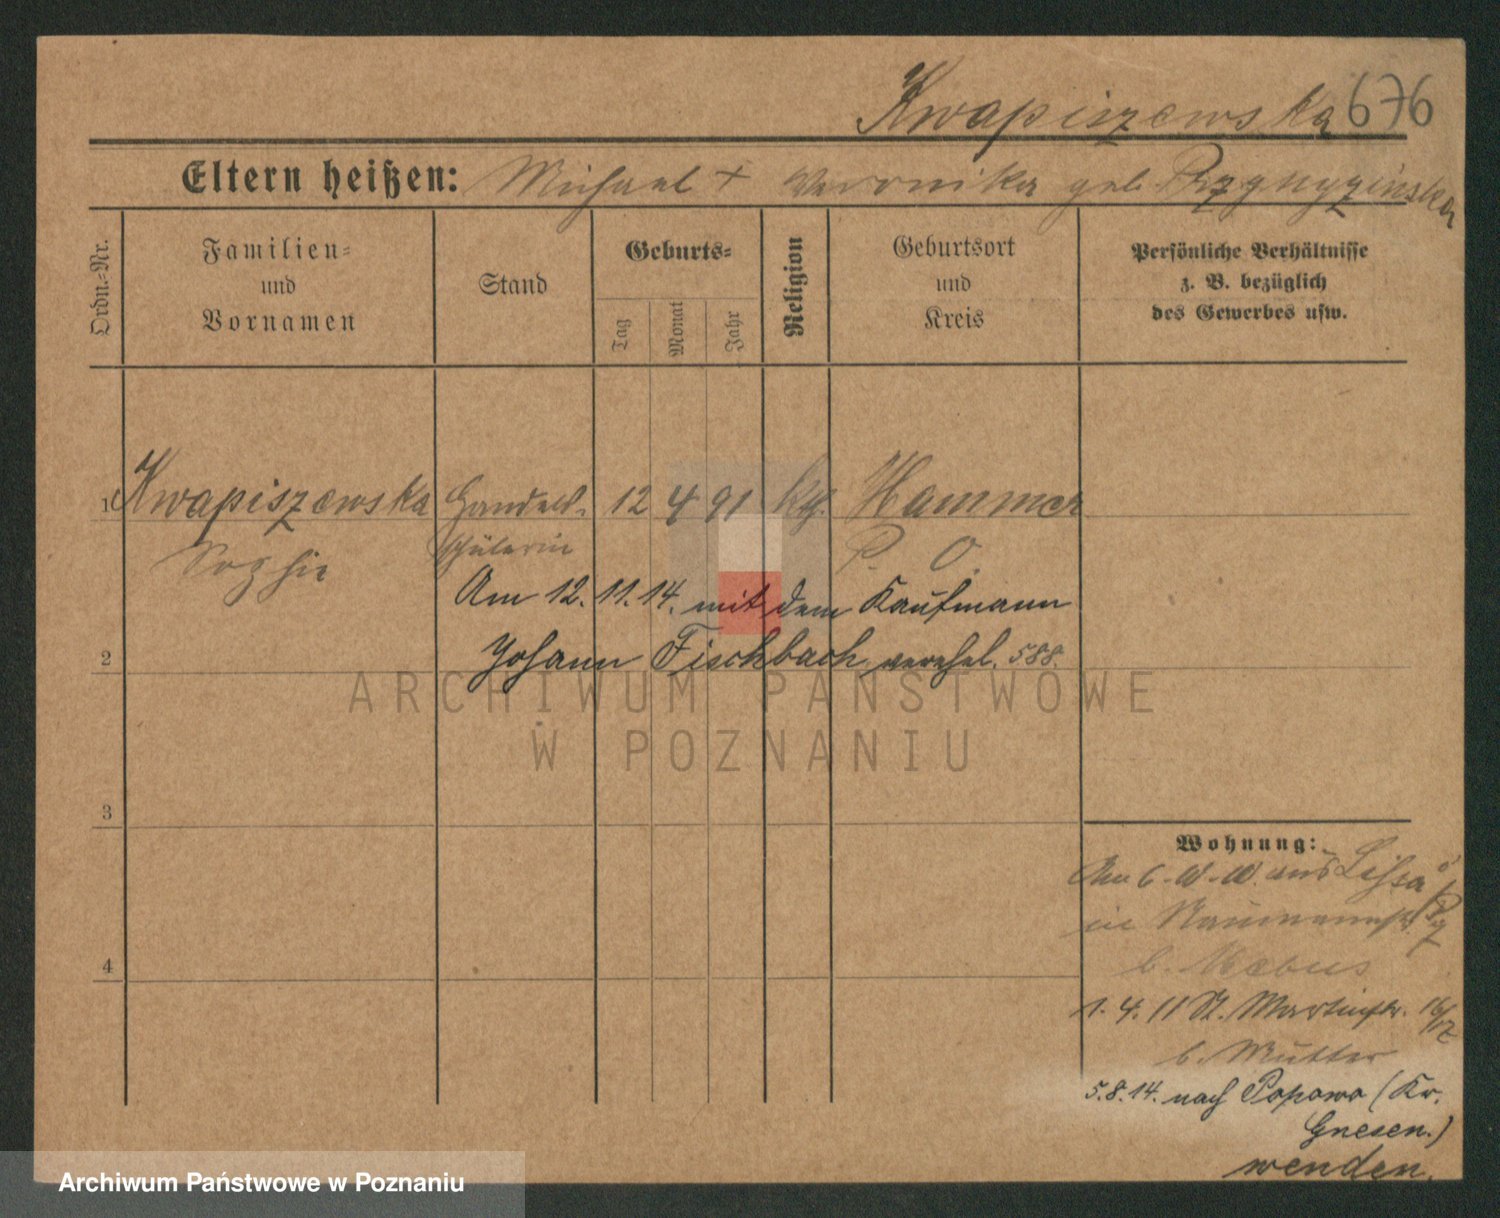 Kwapiszewska 676
Eltern heißen: Michael + Veronika geb.
Ordn.=Nr.
Familien=
und
Vornamen
Stand
Geburts=
Tag
Monat
Jahr
Religion
Geburtsort
und
Kreis
Persönliche Verhältnisse
z. B. bezüglich
des Gewerbes usw.
1 Kwapiszewska Handels- 12 4 91 kth. Hammer
Sophie schülerin P. O.
Am 12. 11. 14. mit dem Kaufmann
2 Johann Fischbach verehel. 588.
ARCHIWUM PAŃSTWOWE
W POZNANIU
3
Wohnung:
aus Lissa
in Naumannstr.
4
b.
1. 4. 11 St. Martinstr. 16/17
b. Mutter
5.8.14. nach Popowo (Kr.
Gnesen.)
wenden.
Archiwum Państwowe w Poznaniu